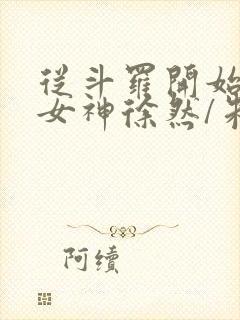 從斗羅開始
女神徐然/朱
阿續